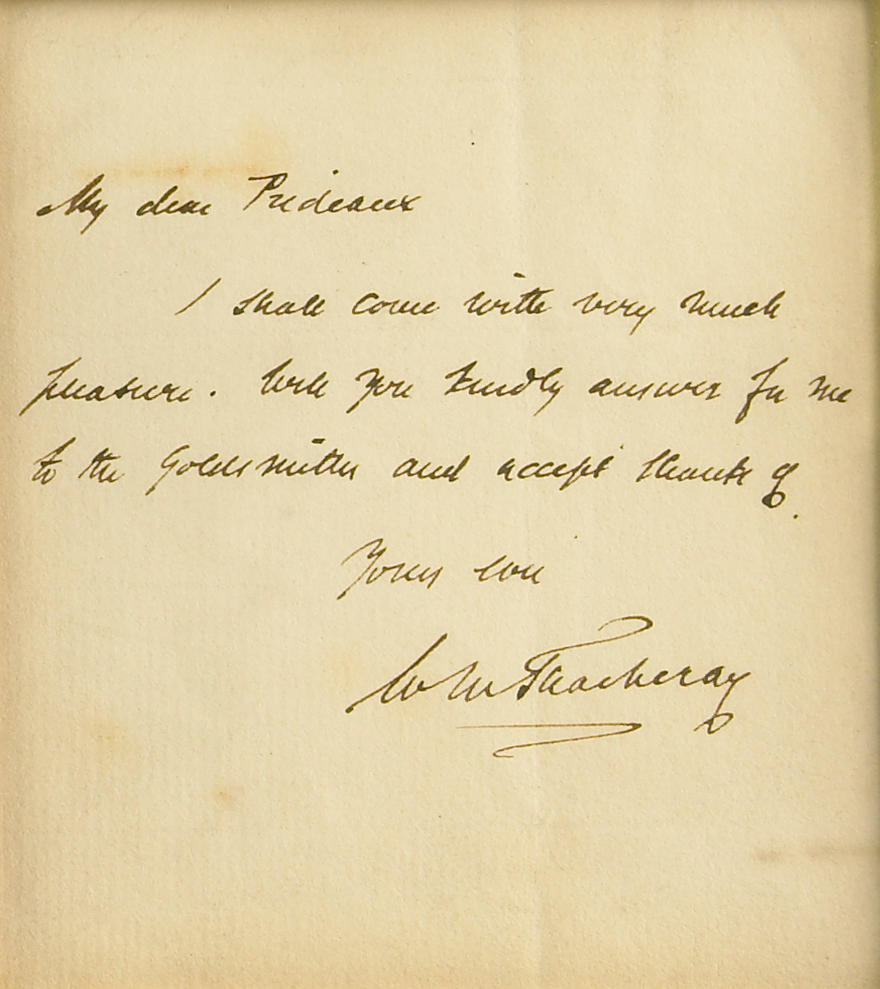 My dear Prideaux
I shall come with very much
pleasure. Will you kindly answer for me
to the Goldsmiths and accept thanks of
Yours
W M Thackeray